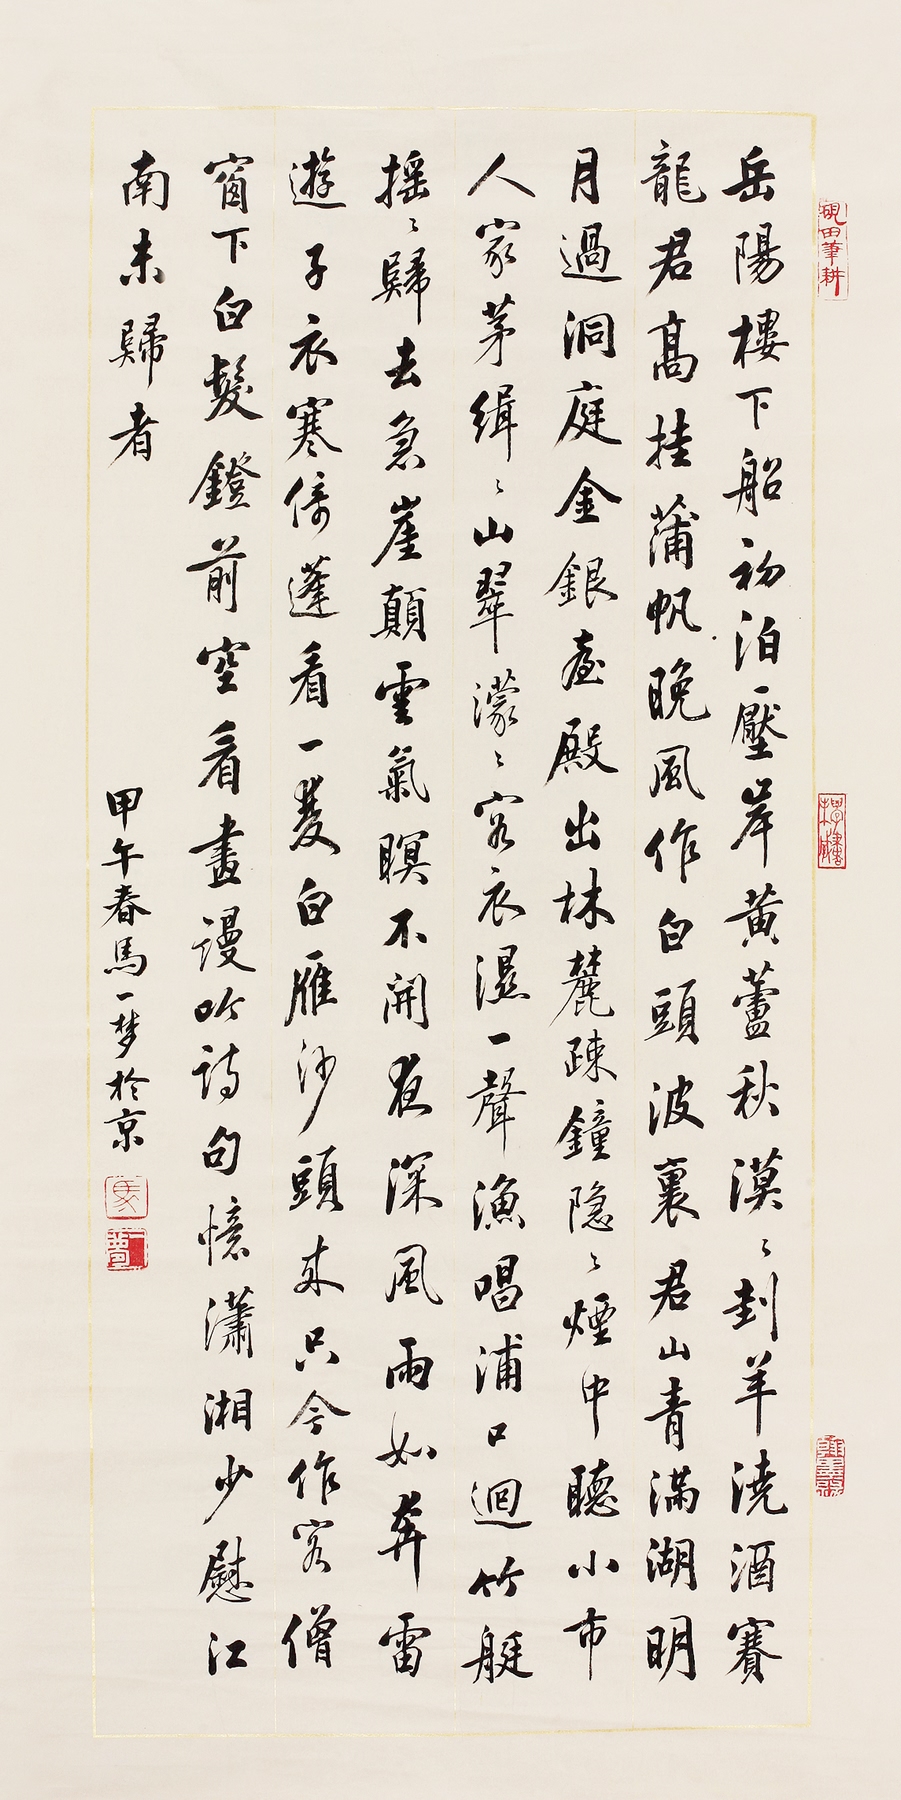 岳陽樓下船初泊壓岸黃蘆秋漠〻刲羊澆酒賽
龍君高挂蒲帆晚風作白頭波裏君山青滿湖明
月過洞庭金銀臺殿出林麓疎鐘隐〻煙中聽小市
人家茅緝〻山翠濛〻客衣濕一聲漁唱浦口迴竹艇
搖〻歸去急崖顛雲氣瞑不開夜深風雨如奔雷
遊子衣寒倚蓬看一雙白雁沙頭來只今作客僧
窗下白髮鐙前空看畫謾吟詩句憶瀟湘少慰江
南未歸者
甲午春馬一梦於京
硯田筆耕